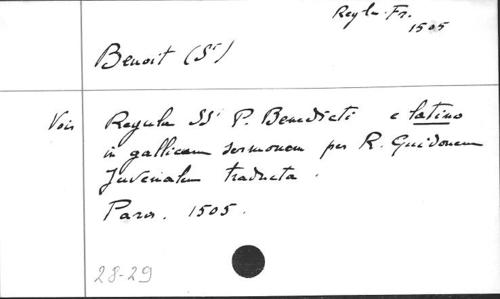 Regle. Fr.
1505
Benoit (St)
Voir Regula SSi P. Benedicti e latino
in gallicam sermonem per R. Guidonem
Juvenalem traducta.
Paris. 1505.
28-29